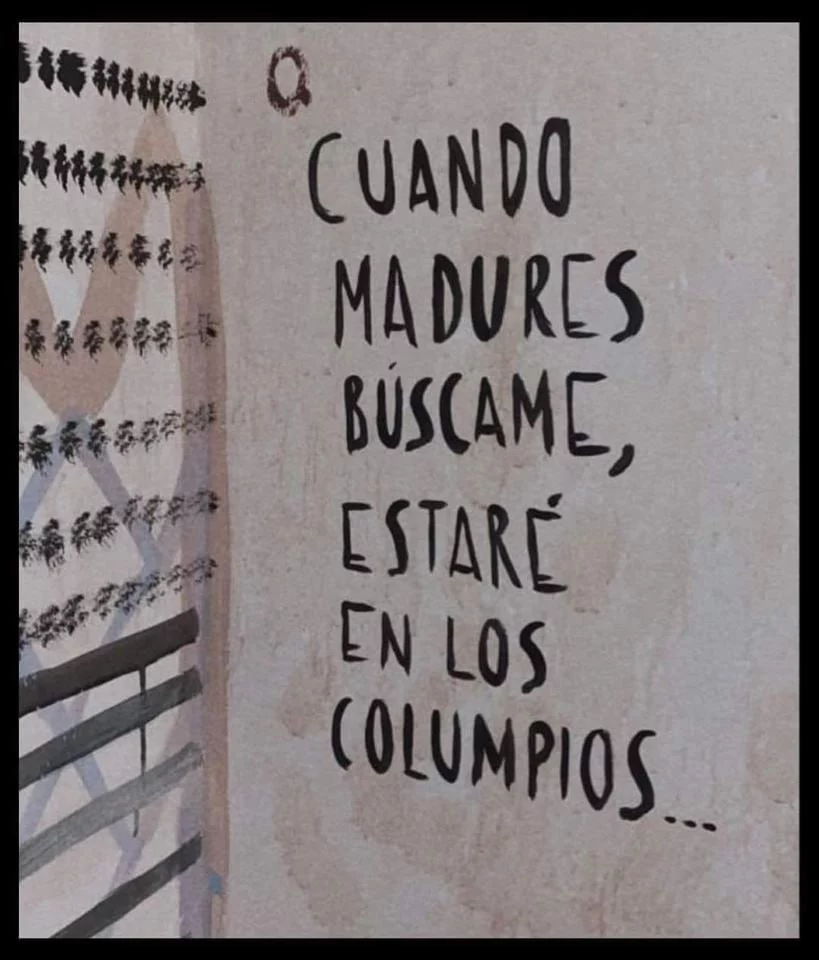 CUANDO
MADURES
BÚSCAME,
ESTARÉ
EN LOS
COLUMPIOS...